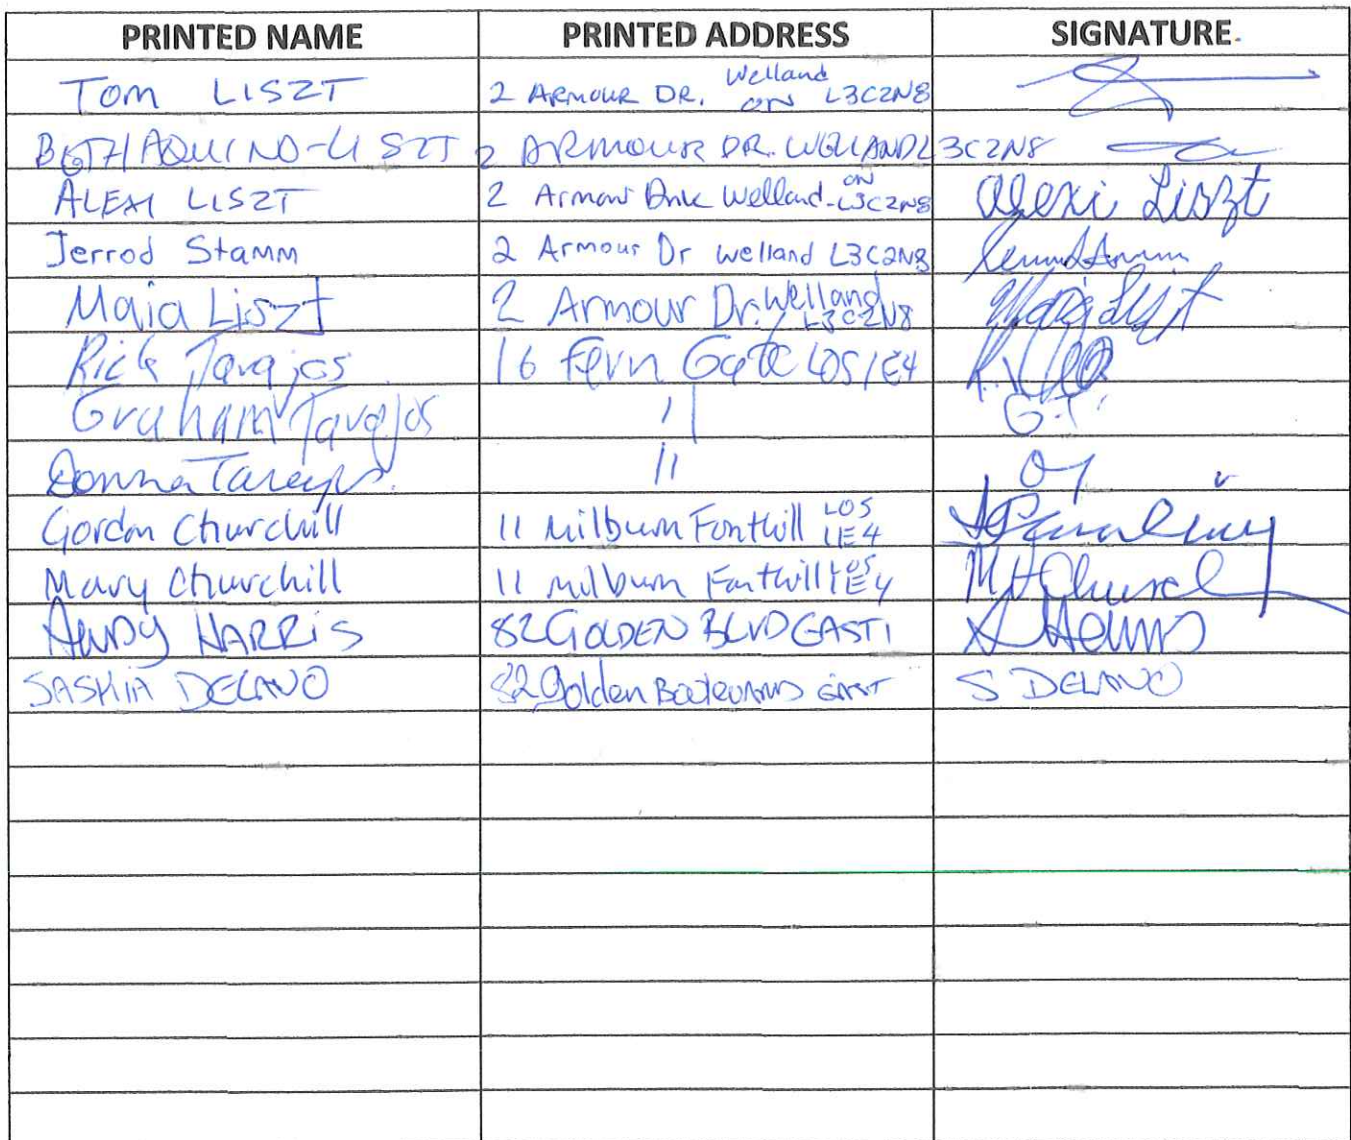 PRINTED NAME PRINTED ADDRESS SIGNATURE
Tom LISZT 2 ARMOUR DR. Welland ON L3C2N8
BETH AQUINO-LISZT 2 ARMOUR DR. WELLAND L3C2N8
ALEXI LISZT 2 Armour Drive Welland ON L3C2N8 Alexi Liszt
Jerrod Stamm 2 Armour Dr Welland L3C2N8
Maia Liszt 2 Armour Dr. Welland L3C2N8 Maia Liszt
Rick 16 Fern Gate L0S1E4
Graham 11 G.T.
Donna 11
Gordon Churchill 11 Milburn Fonthill L0S 1E4
Mary Churchill 11 Milburn Fonthill L0S 1E4 M H Churchill
ANDY HARRIS 82 GOLDEN BLVD EAST A Harris
SASKIA DELANO 82 Golden Boulevard EAST S DELANO